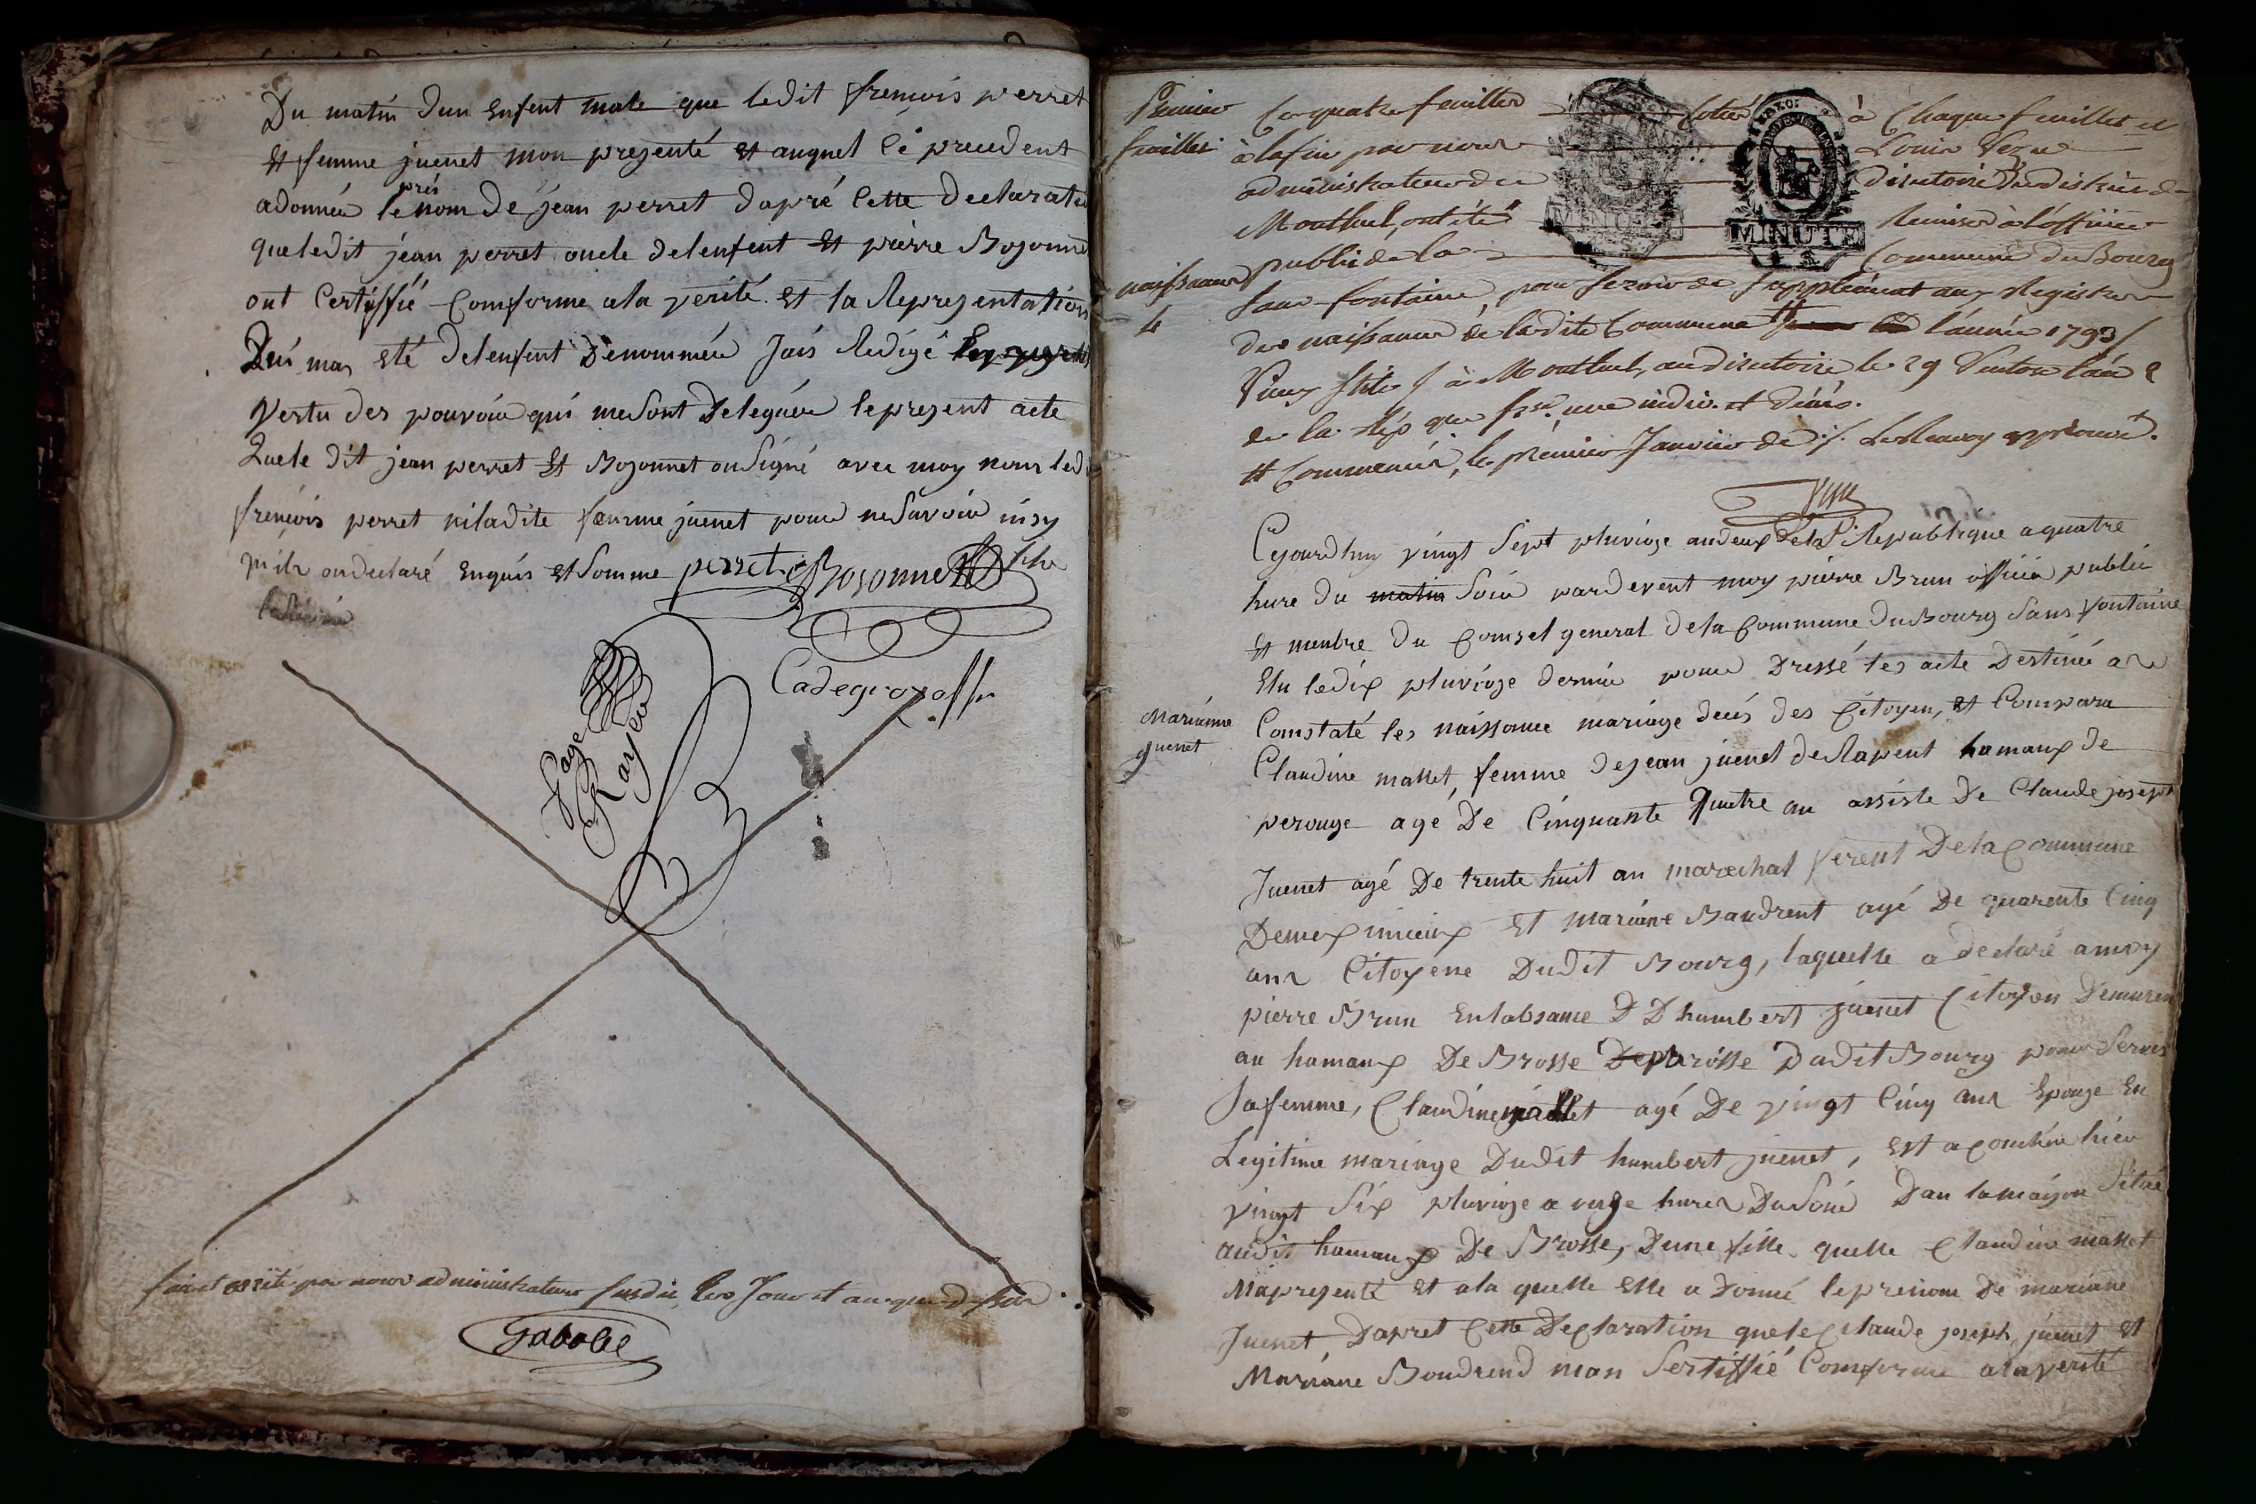 Du matin dun Enfent male que ledit frençois perret
Et femme juenet mon presenté Et auquel lé precedent
adonnée le prés nom dé jean perret dapré Cette Declarate
queledit jéan perret oncle delenfent Et pièrre Bozonne
ont Certiffié Comforme ala verité Et la Representation
Qui mas eté delenfent Dénommée Jais Redigé
Vertu des pouvoir qui me sont Deleguée lepresent acte
Quele dit jean perret Et Bozonnet on Signé avec moy nons led
frençois perret niladite femme juenet pour ne Savoir insy
quils on declaré Enquis Et Somme perret Bozonnet
Cadegroz off
Page Rayée
fait et arrêté par nous administrateur susdit, les Jour et an que dessus
Gabolié
Premier feuillet
Ces quatre feuilles Cotté à Chaque feuillet et
à la fin par nous Louis
administrateur du directoire du district de
Montluel, ont été Remises à l'officier
MINUTE
MINUTE
public de la Commune du Bourg
naissances
4
sans fontaine, pour servir de supplément aux Registres
des naissances de ladite Commune # l'année 1793 /
Vieux stile / à Montluel, au directoire le 29 Ventose l'an 2
de la Rép que frse une indiv. et démo.
# Commencée, le premier Janvier de /. Le Renvoy approuvé.
Cejourdhuy vingt Sept pluvioze andeux dela Republique a quatre
hure du matin Soir pardevent moy pièrre Brun officié public
Et menbre du Comsel general dela Commune du Bourg Sans fontaine
Elu ledix pluvioze dernié pour Dressé les acte Destinée a
Marianne juenet
Comstaté les naissance mariage decés des Citoyen, Et Compara
Claudine mallet, femme dejean juenet de Rapent hamaux de
perouge agé De Cinquante Quatre an assiste De Claude joseph
Juenet agé De trente huit an marechal ferent Dela Commune
Demeximieux Et mariane Baudrent agé De quarente Cinq
ans Citoyene Dudit Bourg, laquelle a declaré a moy
pierre Brun Enlabsance D D humbert juenet Citoyen
au hamaux De Brosse Dudit Bourg
Safemme, Claudine mallet agé De vingt Cinq ans Epouze En
Legitime mariage Dudit humbert juenet, Est acouchée hier
vingt Six pluvioze a onze hures Du Soir Dan la maison Sitùé
audit hamaux De Brosse, Dune fille quelle Claudine mallet
Mapresenté Et ala quelle Elle a Donné leprenom De mariane
Juenet, Dapret Cette Declaration quele Claude joseph juenet Et
Mariane Boudrend mon Sertiffié Comforme ala verité